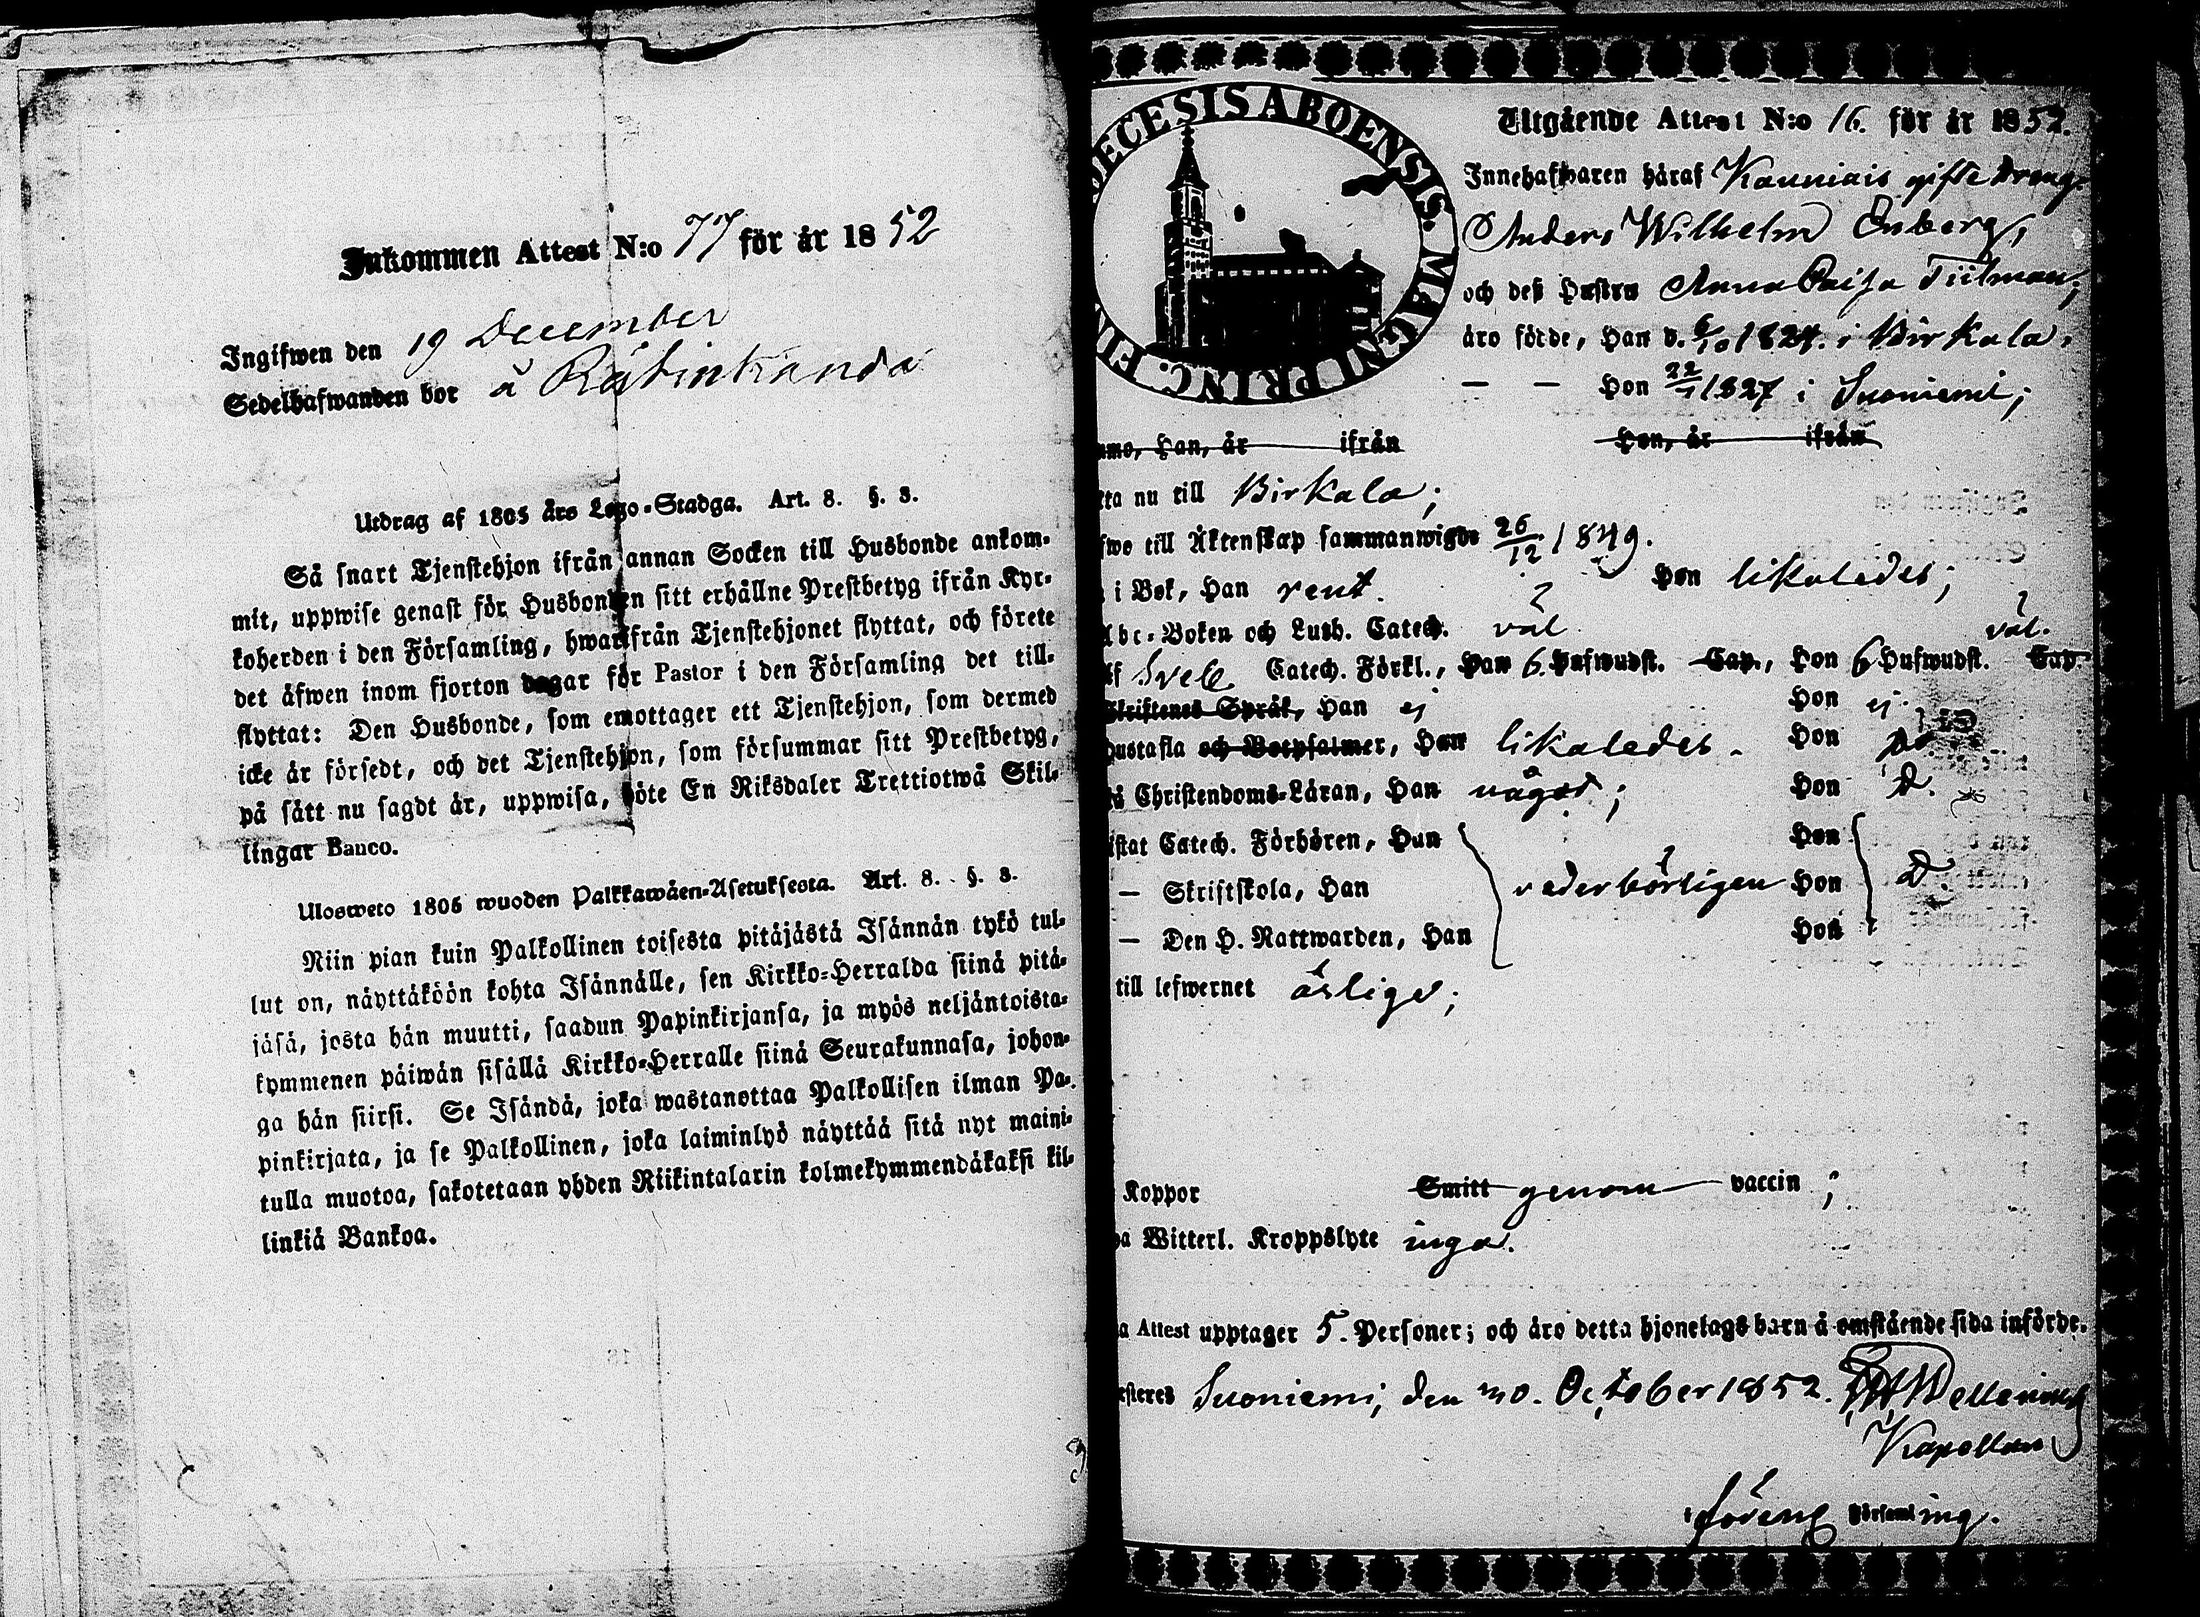 Inkommen Attest N:o 77 för år 1852
Ingifwen den 19 December
Sedelhafwanden bor å
Utdrag af 1805 års Lego-Stadga. Art. 8. §. 3.
Så snart Tjenstehjon ifrån annan Socken till Husbonde ankom-
mit, uppwise genast för Husbonden sitt erhållne Prestbetyg ifrån Kyr-
koherden i den Församling, hwarifrån Tjenstehjonet flyttat, och förete
det äfwen inom fjorton dagar för Pastor i den Församling det till-
flyttat: Den Husbonde, som emottager ett Tjenstehjon, som dermed
icke är försedt, och det Tjenstehjon, som försummar sitt Prestbetyg,
på sätt nu sagdt är, uppwisa, böte En Riksdaler Trettiotwå Skil-
lingar Banco.
Ulosweto 1805 wuoden Palkkawäen-Asetuksesta. Art. 8. §. 3.
Niin pian kuin Palkollinen toisesta pitäjästä Isännän tykö tul-
lut on, näyttäköön kohta Isännälle, sen Kirkko-Herralda siinä pitä-
jäsä, josta hän muutti, saadun Papinkirjansa, ja myös neljäntoista-
kymmenen päiwän sisällä Kirkko-Herralle siinä Seurakunnasa, johon-
ga hän siirsi. Se Isändä, joka wastanottaa Palkollisen ilman Pa-
pinkirjata, ja se Palkollinen, joka laiminlyö näyttää sitä nyt maini-
tulla muotoa, sakotetaan yhden Riikintalarin kolmekymmendäkaksi kil-
linkiä Bankoa.
DECESIS ABOENSIS. MAGNI PRINC. FIN
Utgående Attest N:o 16. för år 1852.
Innehafwaren häraf Kauniais gifte dreng
Anders Wilhelm Enberg,
och deß Hustru Anna Caisa Tiilman;
äro födde, Han d. 6/10 1824. i Birkala,
— — Hon 22/1 1827 i Suoniemi;
mo, Han, år ifrån Hon, år ifrån
ta nu till Birkala;
fwo till Äktenskap sammanwigde 26/12 1849.
i Bok, Han rent. Hon likaledes;
Abc-Boken och Luth. Catech. väl väl.
af Sveb. Catech. Förkl., Han 6. Hufwudst. Cap., Hon 6 Hufwudst. Cap.
Skriftenes Språk, Han ej Hon ej.
Hustafla och Botpsalmer, Han likaledes. Hon
å Christendoms-Läran, Han något; Hon D.
istat Catech. Förhören, Han Hon
— Skriftskola, Han vederbörligen Hon D.
— Den H. Nattwarden, Han Hon
till lefwernet ärliga;
Koppor Smitt genom vaccin;
a Witterl. Kroppslyte inga.
a Attest upptager 5. Personer; och äro detta hjonelags barn å omstående sida införde.
esteres Suoniemi, den 30. October 1852.
Kapellan
i förene Församling.